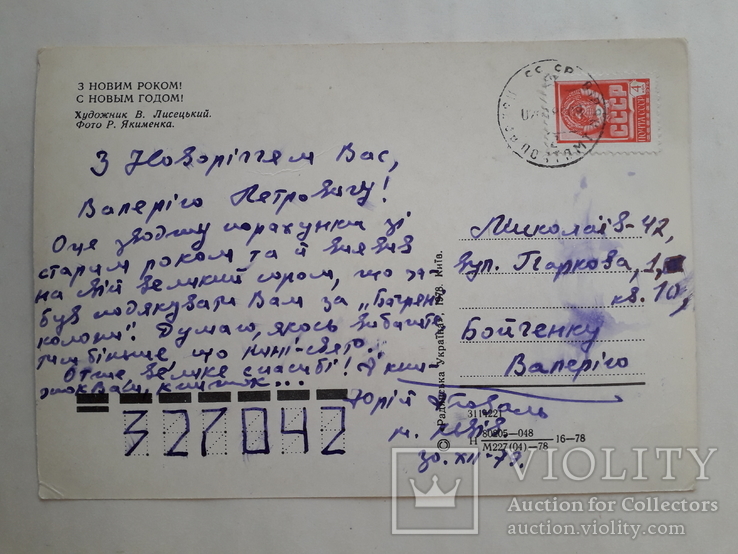 З НОВИМ РОКОМ!
С НОВЫМ ГОДОМ!
Художник В. Лисецький.
Фото Р. Якименка.
З Новоріччям Вас,
Валерію Петровичу!
Оце зводжу порахунки зі
старим роком та й виявив
на свій великий сором, що за-
був подякувати Вам за „Багряні
колони". Думаю, якось вибачите
тим більше, що нині-свято.
Отже велике спасибі!
Юрій
м.
30. XII-78.
Миколаїв-42,
вул. Паркова, 1,
кв. 10,
Бойченку
Валерію
327042
© «Радянська Україна», 1978. Київ.
3114221
Н 80205—048 16—78
М227(04)—78
СССР
ПОЧТА СССР
4
VIOLITY
Auction for Collectors
auction.violity.com